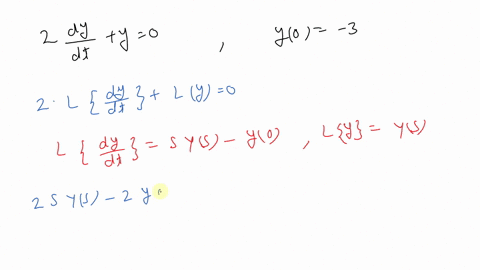 2 dy/dt + y = 0 , y(0) = -3
2· L{dy/dt} + L(y) = 0
L{dy/dt} = S Y(S) - y(0) , L{y} = Y(S)
2 S Y(S) - 2 y